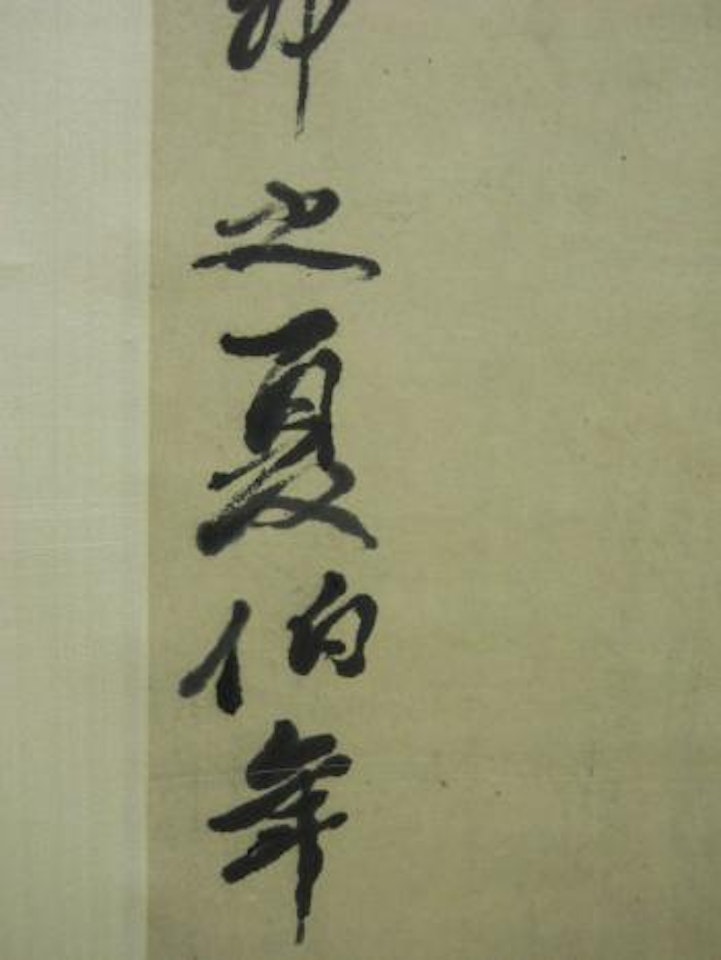 之夏伯年